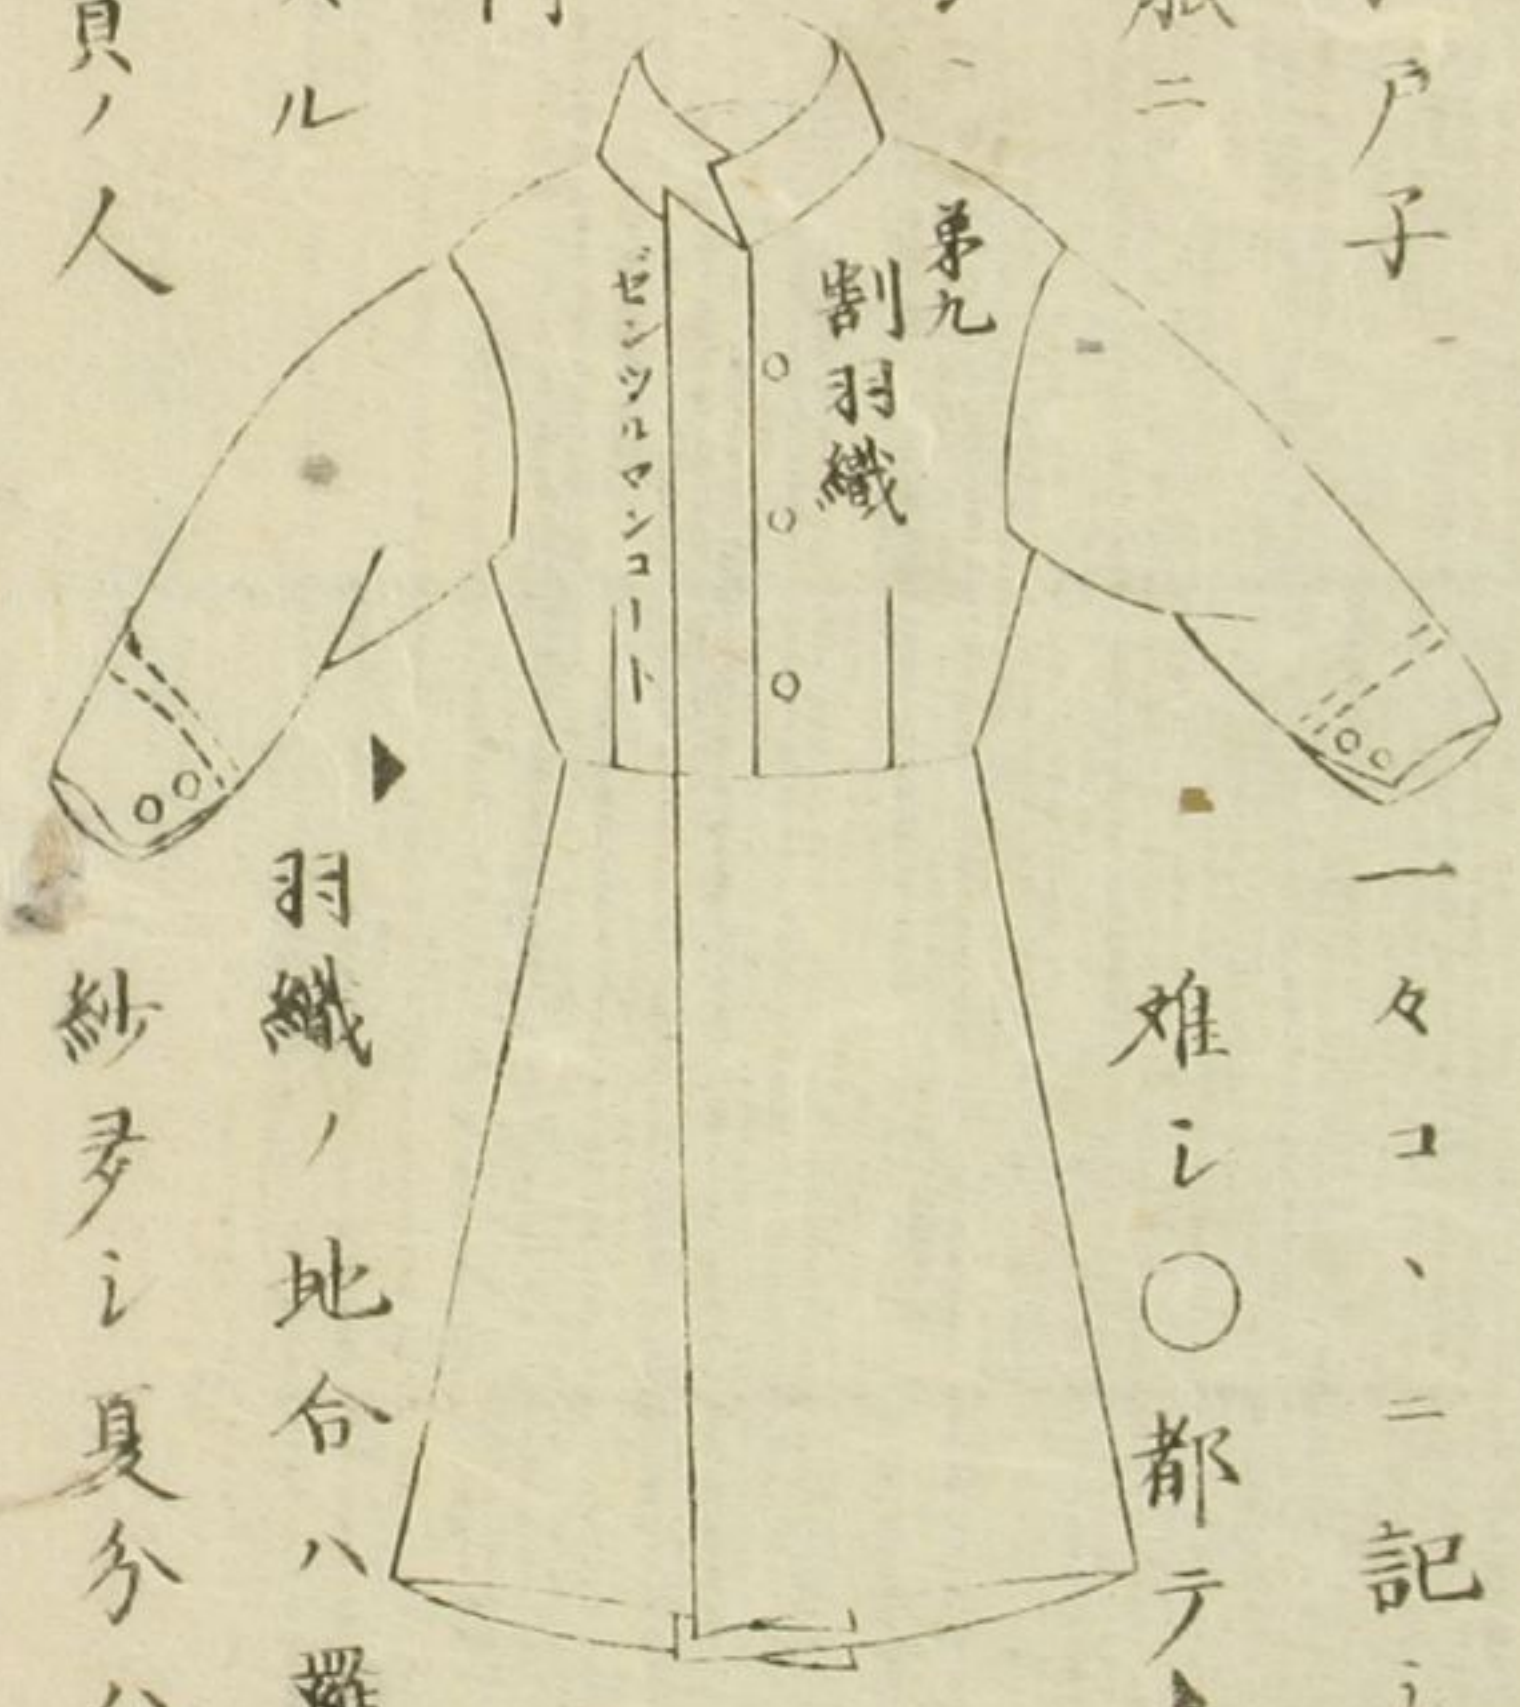 戸子一々コヽニ記シ
ニ難シ〇都テ
第九
割羽織
ゼンツルマンコート
ル羽織ノ地合ハ羅
ノ人紗多シ夏分ハ